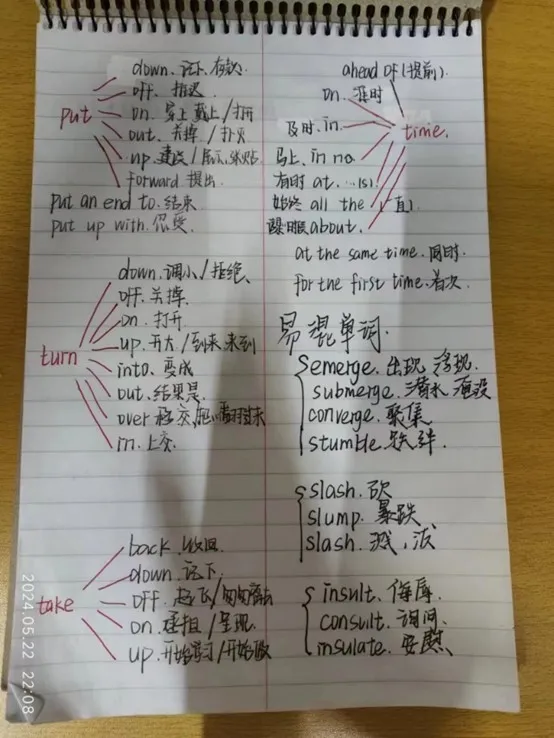 put
down. 记下、存款
off. 推迟
on. 穿上 戴上/打开
out. 关掉/扑灭
up. 建议/展示、张贴
forward 提出
put an end to. 结束
put up with. 忍受
turn
down. 调小/拒绝
off. 关掉
on. 打开
up. 开大/到来 来到
into. 变成
out. 结果是
over 移交
in. 上交
take
back 收回
down. 记下
off. 起飞/匆匆离去
on. 承担/呈现
up. 开始学习/开始做
ahead of (提前).
on. 准时
及时. in.
time.
马上. in no
有时 at. ...(s)
始终 all the (一直)
about.
at the same time. 同时.
for the first time. 首次
易混单词.
emerge. 出现 浮现.
submerge. 潜水 淹没
converge. 聚集
stumble. 跌绊.
slash. 砍
slump. 暴跌
slash. 溅、泼
insult. 侮辱.
consult. 询问.
insulate.
2024.05.22 22:08